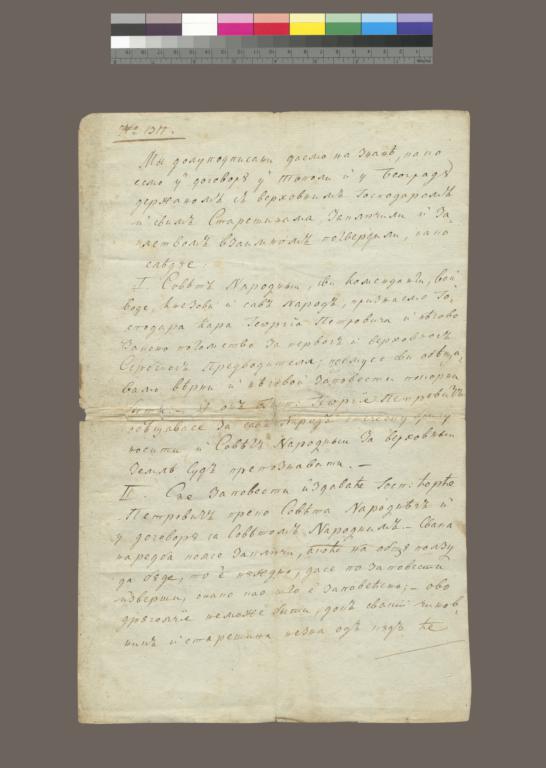 № 1317.
Мы долуподписани даемо на знанѣ, како
есмо у договорꙋ у Тополи и у Београдꙋ
держаномъ съ верховнимъ Господаромъ
и свимъ Старешинама Заключили и За
клетвомъ взаимномъ подтвердили, како
слѣдꙋе.
I. Совѣтъ Народный, сви Команданти, вой
воде, кнезови и савъ народъ, признаемо Го,
сподара Кара Георгiя Петровича и нѣгово
Законо потомство За первогъ и верховногъ
Сербскогъ Предводителя; коемꙋ се сви обеща,
вамо вѣрни и нѣговой Заповести покорни
быти. Георгiя Петровичъ
обѣщавасе За савъ Народъ отеческу бригу
носити, и Совѣтъ Народный За верховный
Землѣ Судъ препознавати. —
II. Све Заповести издаваће Госп: Ђорђе
Петровичъ преко Совѣта Народнѣгъ и
у договорꙋ са Совѣтомъ Народнимъ. — Свака
наредба коясе Заключи, а кое на общꙋ ползꙋ
да бꙋде, то є нꙋждно, дасе по Заповести
изверши, онако као што є Заповеђено; — ово
дрꙋгоячiе неможе бити, докъ сваки чинов,
никъ и старешина незна одъ кꙋдъ ће